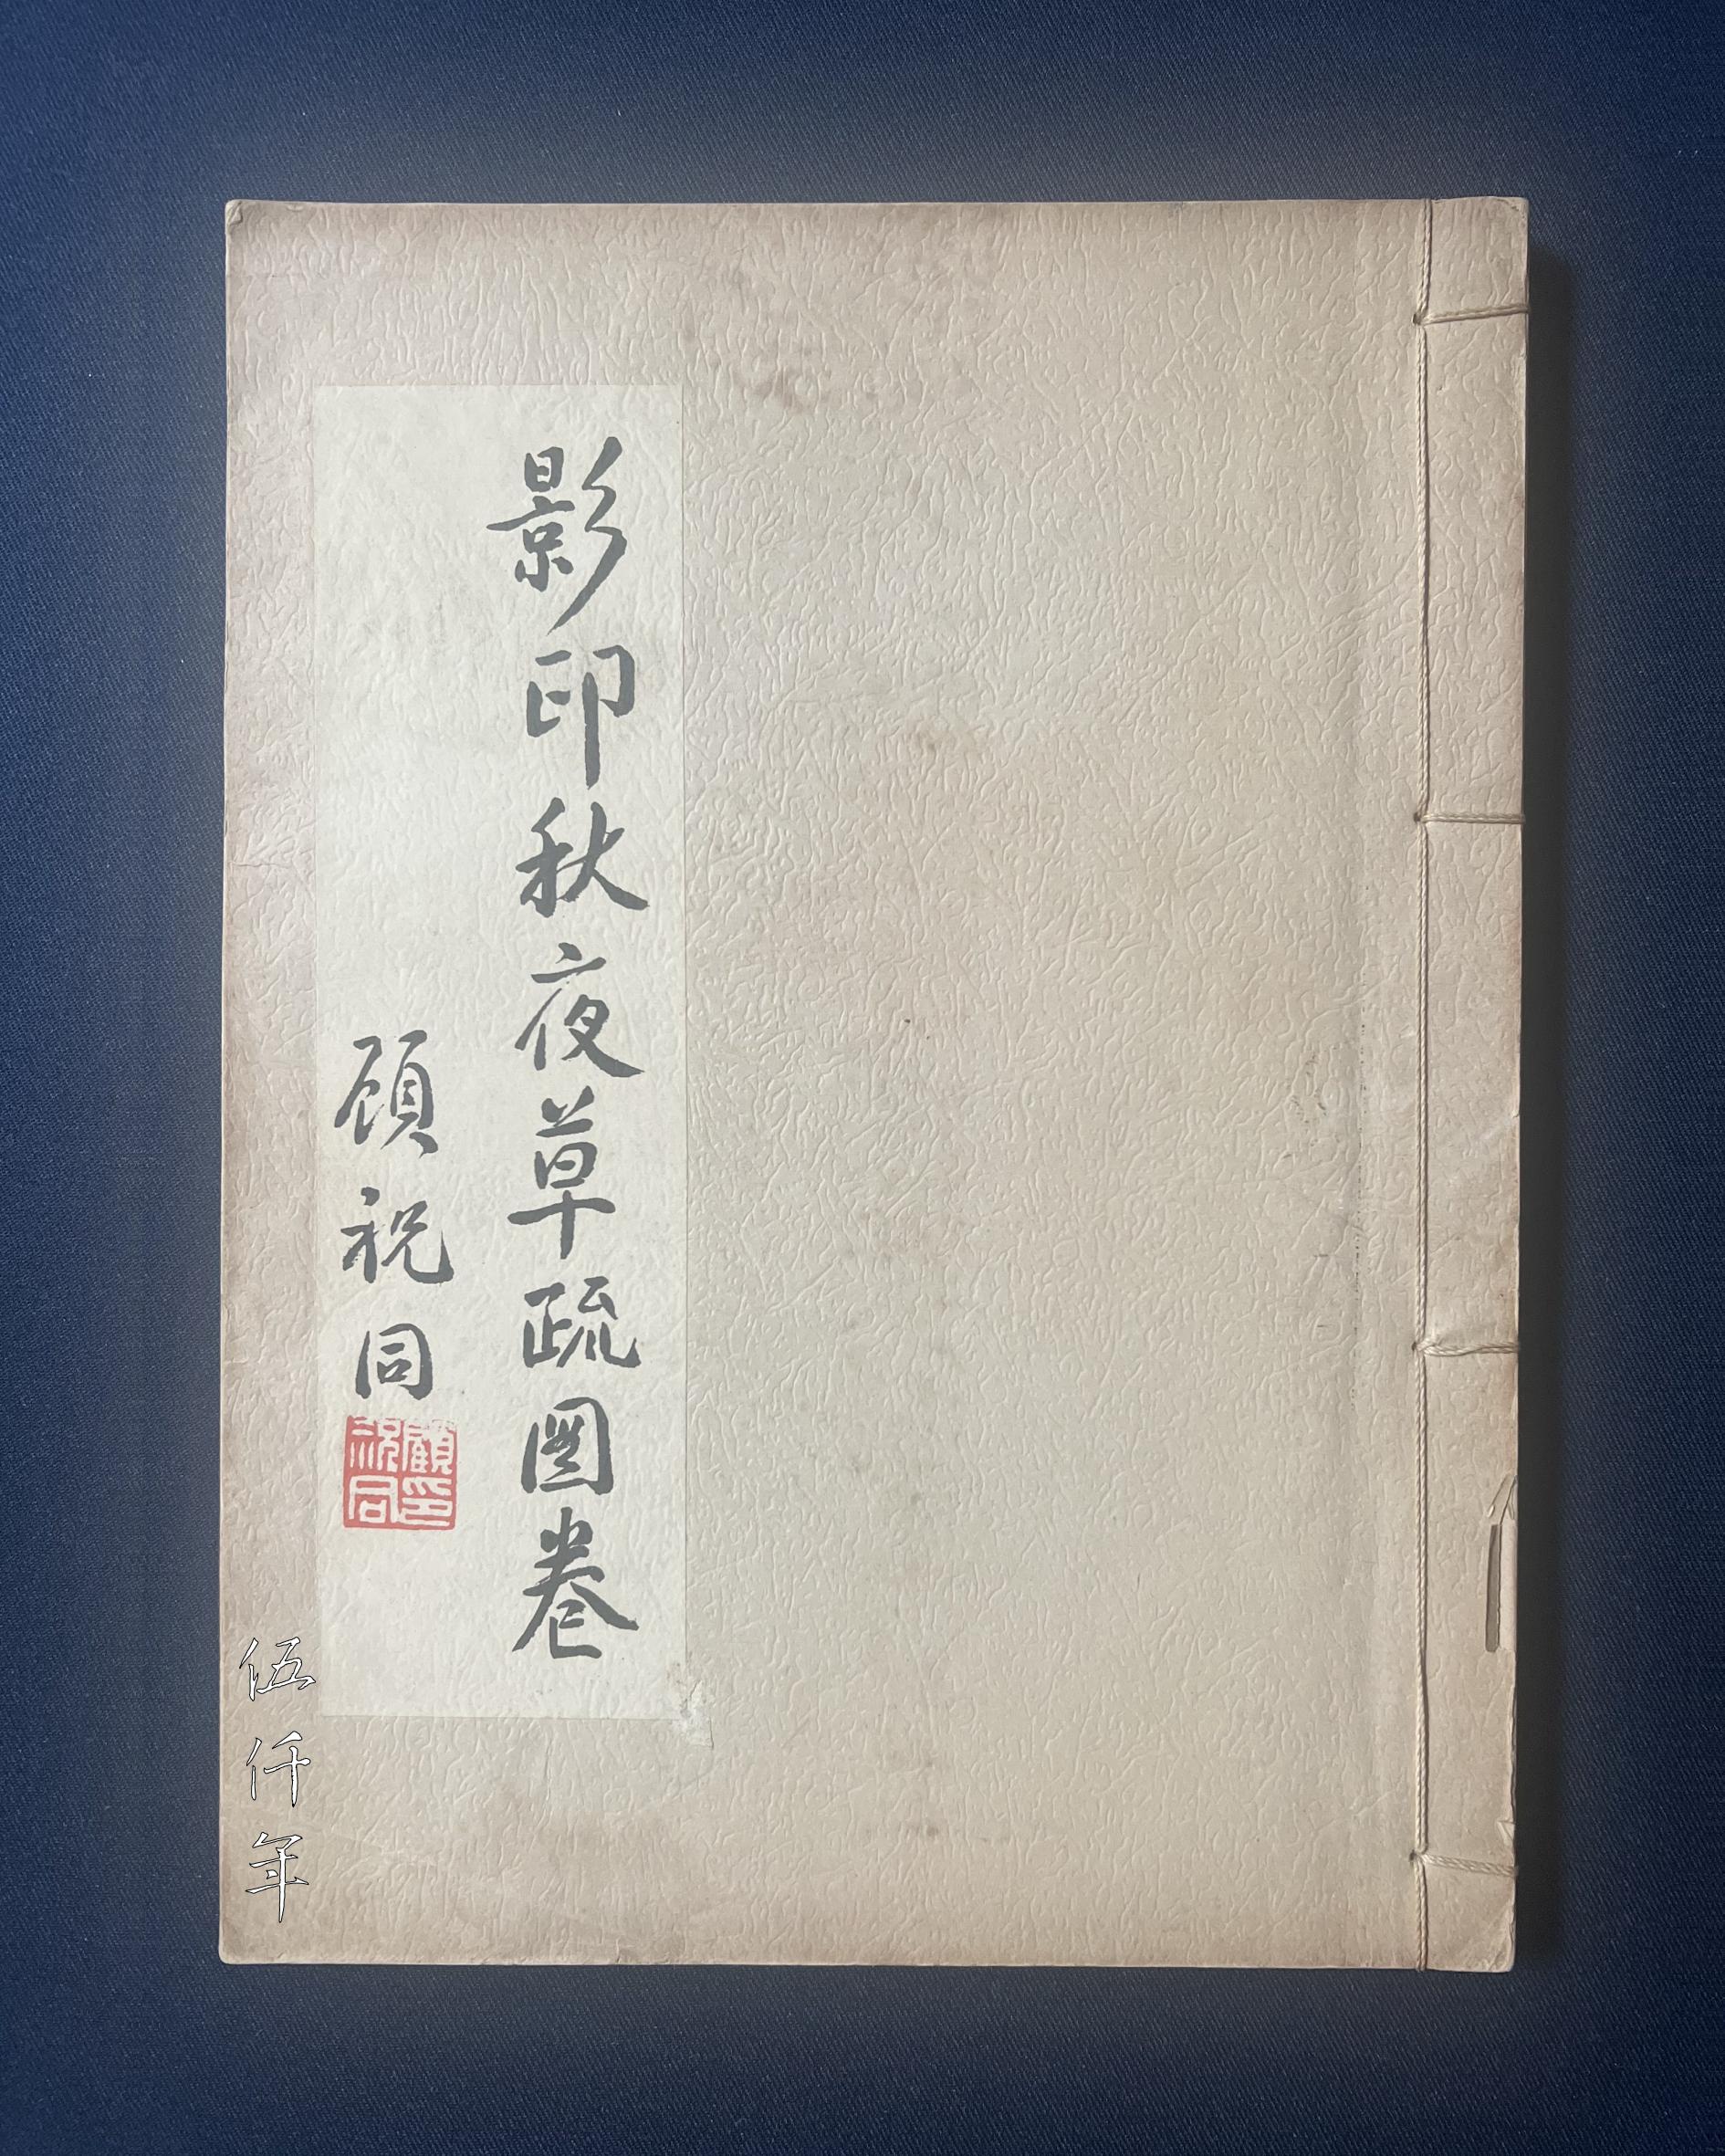 影印秋夜草疏圖卷
顧祝同
顧印
祝同
伍仟年